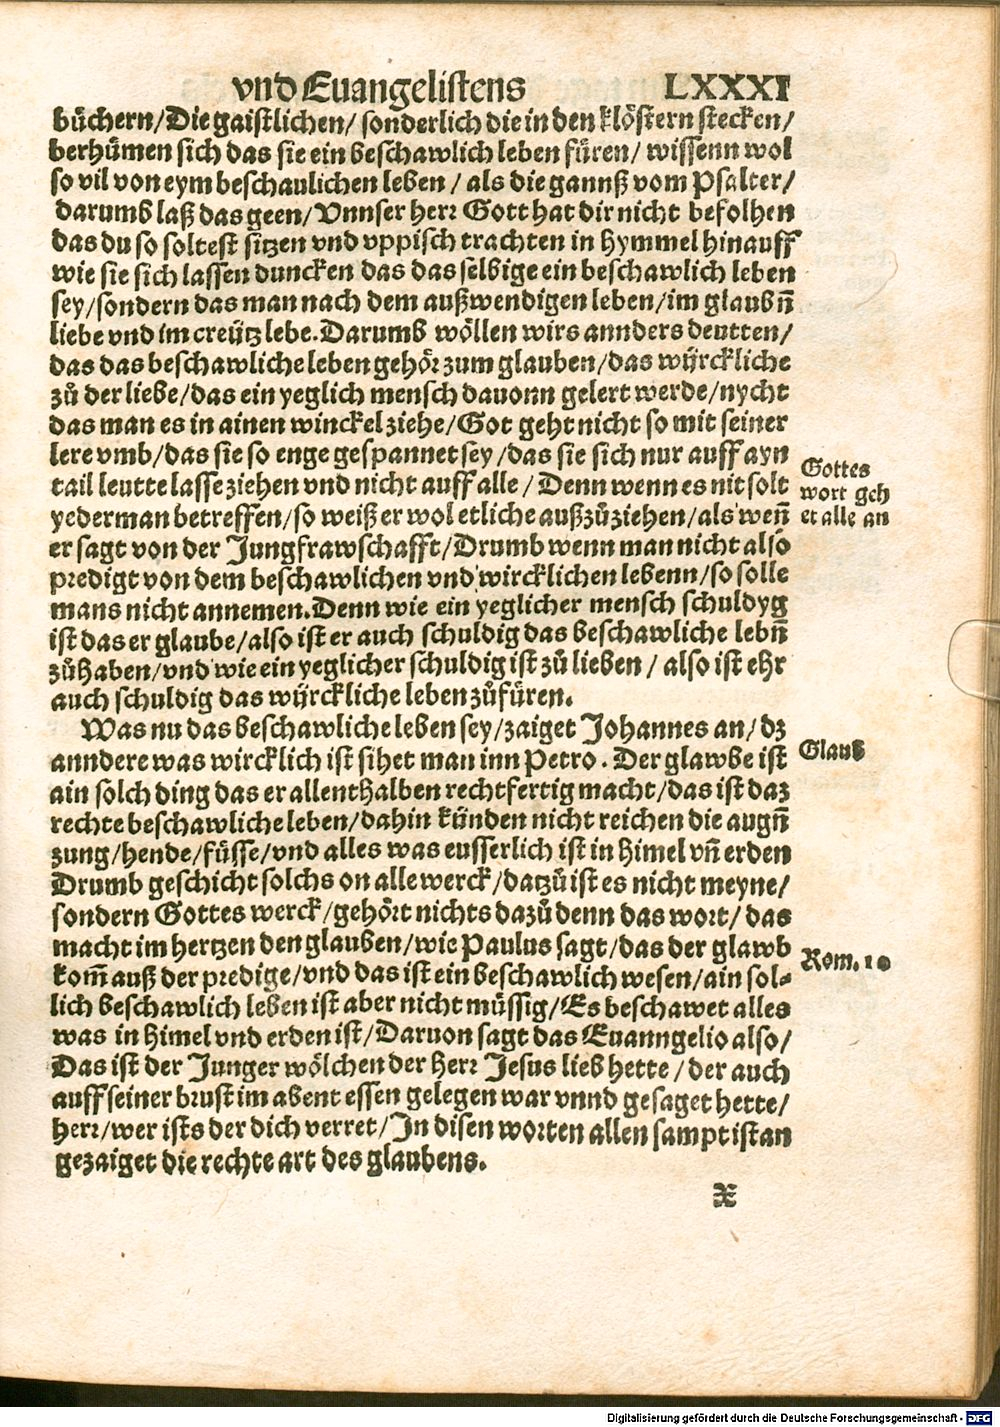 vnd Euangelistens LXXXI
bůchern/Die gaistlichen/ sonderlich die in den klöstern stecken/
berhůmen sich das sie ein beschawlich leben füren/ wissenn wol
so vil von eym beschaulichen leben / als die gannß vom Psalter/
darumb laß das geen/Vnnser herr Gott hat dir nicht befolhen
das du so soltest sitzen vnd vppisch trachten in hymmel hinauff
wie sie sich lassen duncken das das selbige ein beschawlich leben
sey/sondern das man nach dem außwendigen leben/im glaubn̄
liebe vnd im creütz lebe.Darumb wöllen wirs annders deutten/
das das beschawliche leben gehör zum glauben/das wÿrckliche
zů der liebe/das ein yeglich mensch dauonn gelert werde/nycht
das man es in ainen winckel ziehe/Got geht nicht so mit seiner
lere vmb/das sie so enge gespannet sey/das sie sich nur auff ayn
tail leutte lasse ziehen vnd nicht auff alle / Denn wenn es nit solt
yederman betreffen/so weiß er wol etliche außzůziehen/als wen̄
er sagt von der Jungfrawschafft/Drumb wenn man nicht also
predigt von dem beschawlichen vnd wircklichen lebenn/so solle
mans nicht annemen.Denn wie ein yeglicher mensch schuldyg
ist das er glaube/also ist er auch schuldig das beschawliche lebn̄
zůhaben/vnd wie ein yeglicher schuldig ist zů lieben / also ist ehr
auch schuldig das wÿrckliche leben zůfüren.
Was nu das beschawliche leben sey/zaiget Johannes an/dz
anndere was wircklich ist sihet man inn Petro. Der glawbe ist
ain solch ding das er allenthalben rechtfertig macht/das ist daz
rechte beschawliche leben/dahin künden nicht reichen die augn̄
zung/hende/füsse/vnd alles was eusserlich ist in himel vn̄ erden
Drumb geschicht solchs on alle werck/datzů ist es nicht meyne/
sondern Gottes werck/gehört nichts dazů denn das wort/das
macht im hertzen den glauben/wie Paulus sagt/das der glawb
kom̄ auß der predige/vnd das ist ein beschawlich wesen/ain sol-
lich beschawlich leben ist aber nicht müssig/Es beschawet alles
was in himel vnd erden ist/Daruon sagt das Euanngelio also/
Das ist der Junger wölchen der herr Jesus lieb hette / der auch
auff seiner brust im abent essen gelegen war vnnd gesaget hette/
herr/wer ists der dich verret/In disen worten allen sampt ist an
gezaiget die rechte art des glaubens.
X
Gottes
wort geh
et alle an
Glaub
Rom. 10
Digitalisierung gefördert durch die Deutsche Forschungsgemeinschaft - DFG